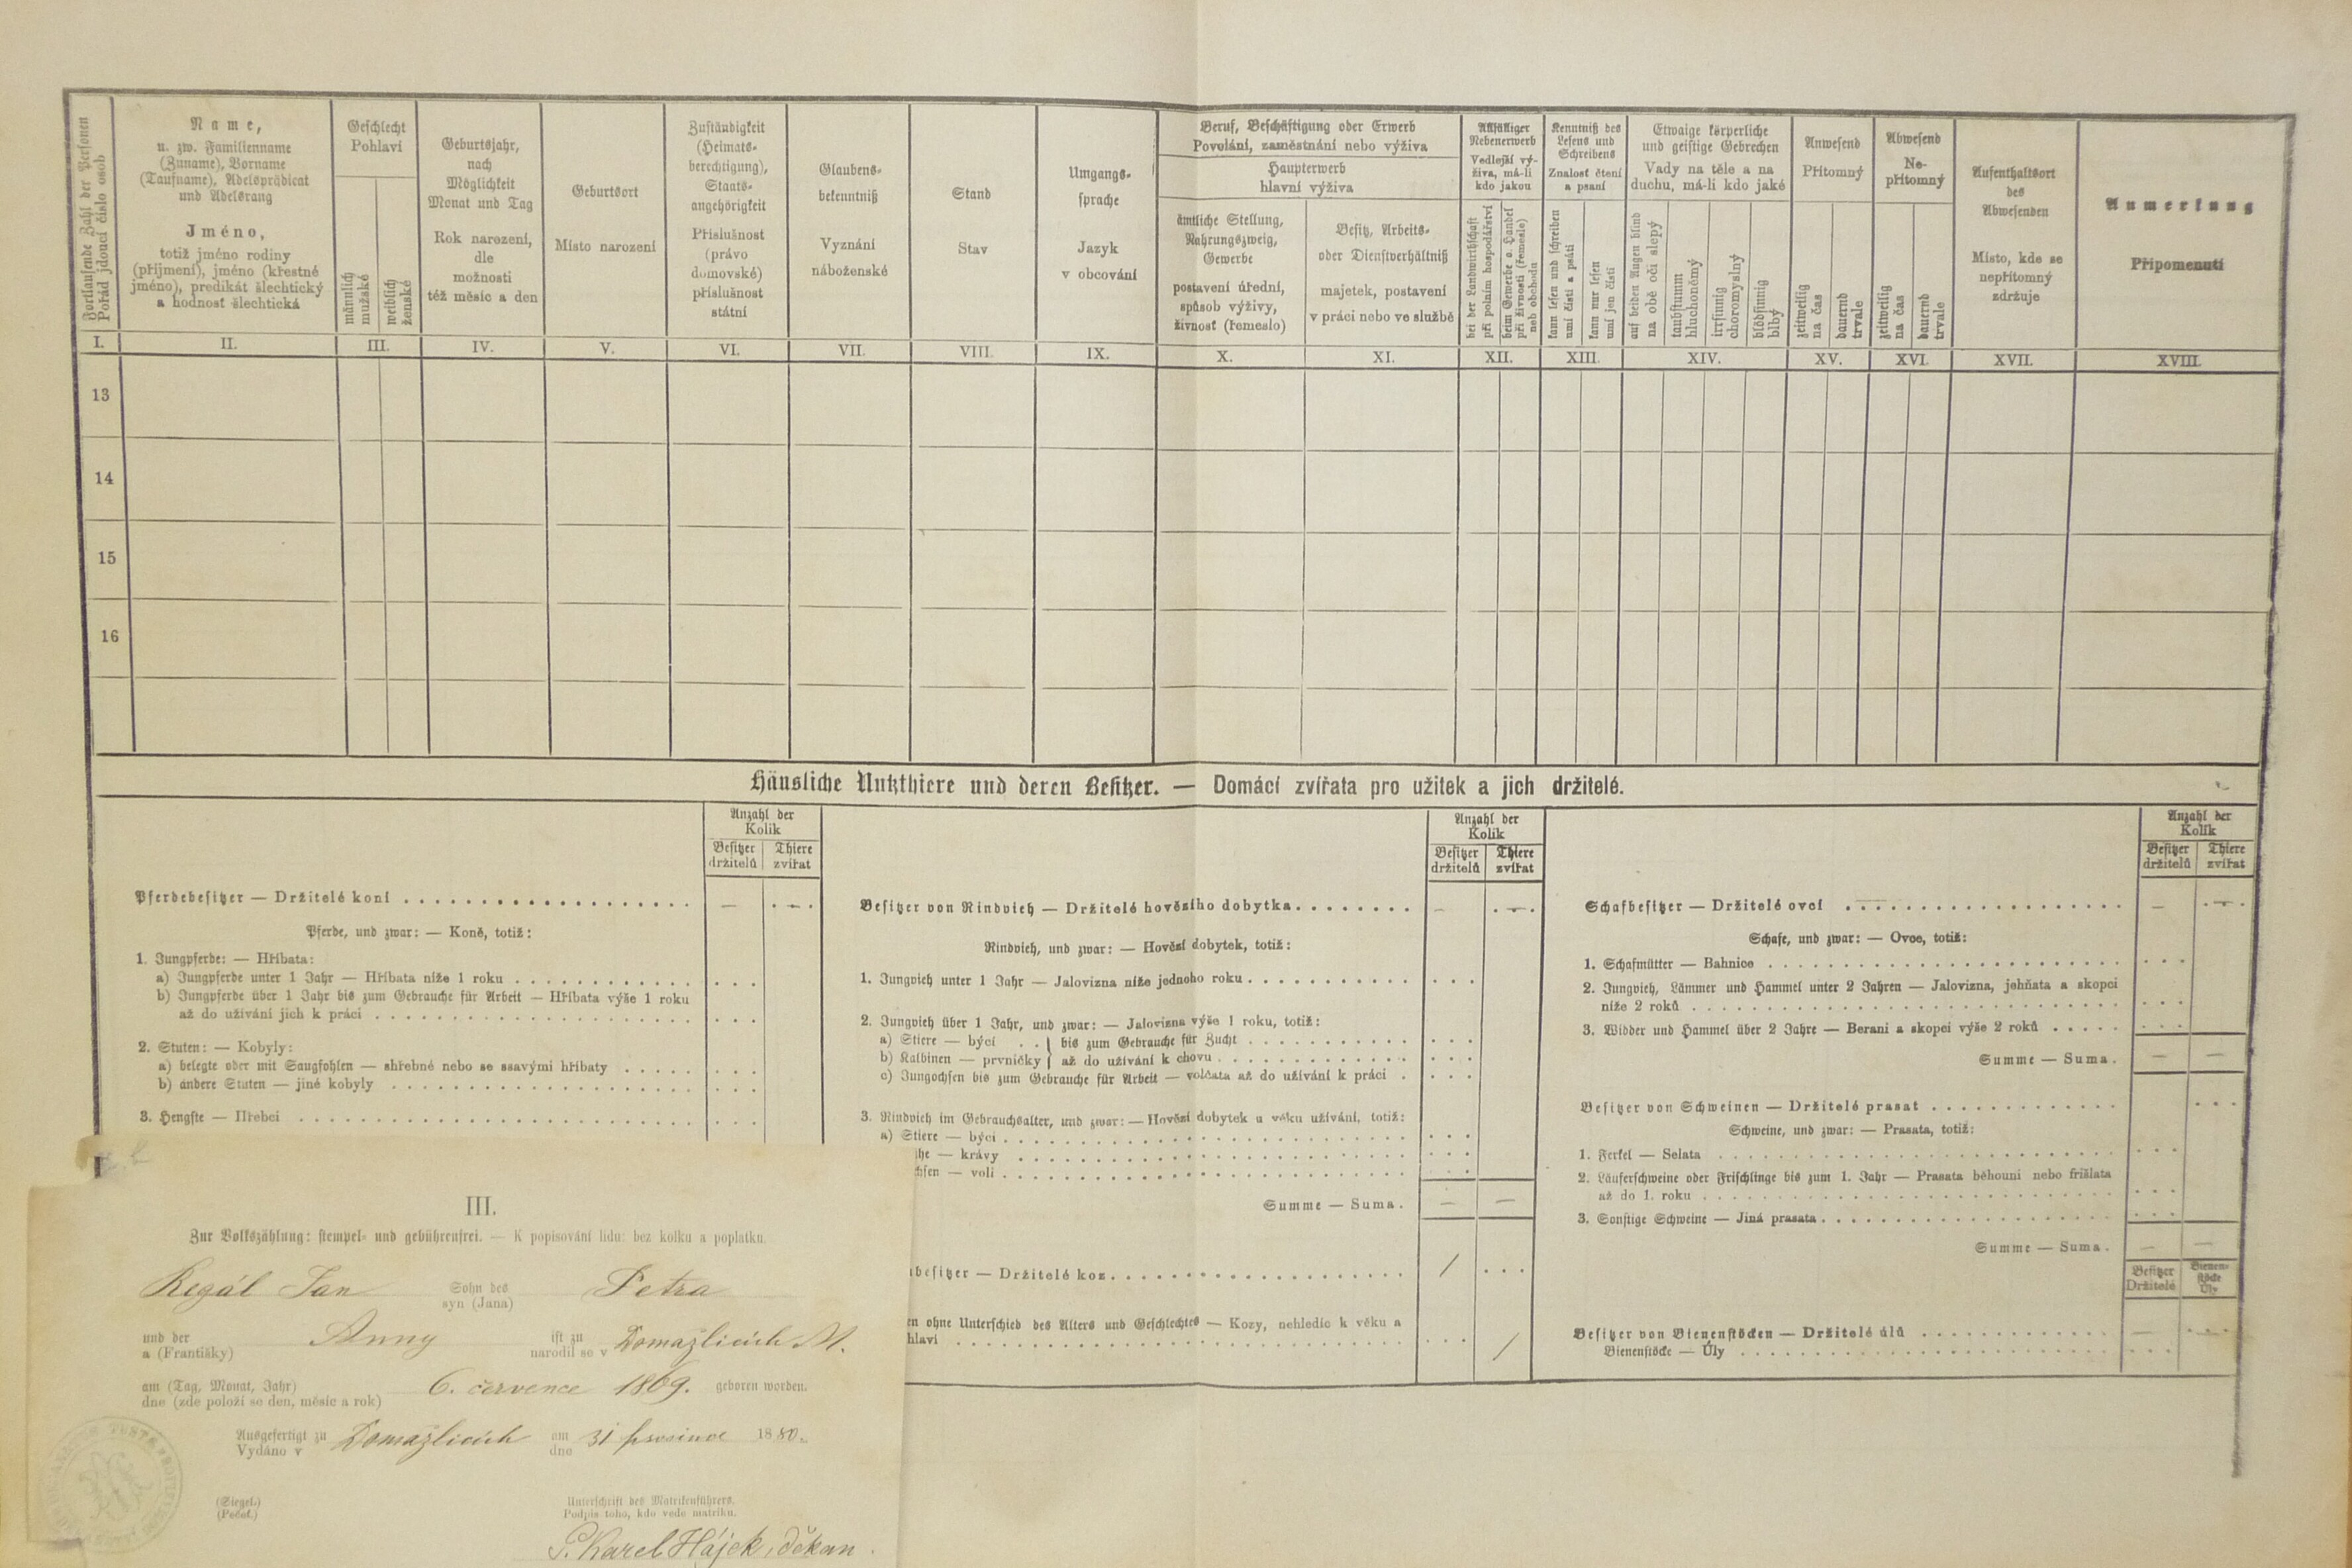 Fortlaufende Zahl der Personen
Pořád jdoucí číslo osob
Name,
u. zw. Familienname
(Zuname), Vorname
(Taufname), Adelsprädicat
und Adelsrang
Jméno,
totiž jméno rodiny
(příjmení), jméno (křestné
jméno), predikát šlechtický
a hodnosť šlechtická
Geschlecht
Pohlaví
männlich
mužské
weiblich
ženské
Geburtsjahr,
nach
Möglichkeit
Monat und Tag
Rok narození,
dle
možnosti
též měsíc a den
Geburtsort
Místo narození
Zuständigkeit
(Heimats-
berechtigung),
Staats-
angehörigkeit
Příslušnost
(právo
domovské)
příslušnost
státní
Glaubens-
bekenntniß
Vyznání
náboženské
Stand
Stav
Umgangs-
sprache
Jazyk
v obcování
Beruf, Beschäftigung oder Erwerb
Povolání, zaměstnání nebo výživa
Haupterwerb
hlavní výživa
ämtliche Stellung,
Nahrungszweig,
Gewerbe
postavení úřední,
spůsob výživy,
živnosť (řemeslo)
Besitz, Arbeits-
oder Dienstverhältniß
majetek, postavení
v práci nebo ve službě
Allfälliger
Nebenerwerb
Vedlejší vý-
živa, má-li
kdo jakou
bei der Landwirthschaft
při polním hospodářství
beim Gewerbe o. Handel
při živnosti (řemesle)
neb obchodu
Kenntniß des
Lesens und
Schreibens
Znalosť čtení
a psaní
kann lesen und schreiben
umí čísti a psáti
kann nur lesen
umí jen čísti
Etwaige körperliche
und geistige Gebrechen
Vady na těle a na
duchu, má-li kdo jaké
auf beiden Augen blind
na obě oči slepý
taubstumm
hluchoněmý
irrsinnig
choromyslný
blödsinnig
blbý
Anwesend
Přítomný
zeitweilig
na čas
dauernd
trvale
Abwesend
Ne-
přítomný
zeitweilig
na čas
dauernd
trvale
Aufenthaltsort
des
Abwesenden
Místo, kde se
nepřítomný
zdržuje
Anmerkung
Připomenutí
I. II. III. IV. V. VI. VII. VIII. IX. X. XI. XII. XIII. XIV. XV. XVI. XVII. XVIII.
13
14
15
16
Häusliche Nutzthiere und deren Besitzer. — Domácí zvířata pro užitek a jich držitelé.
Anzahl der
Kolik
Besitzer Thiere
držitelů zvířat
Pferdebesitzer — Držitelé koní
Pferde, und zwar: — Koně, totiž:
1. Jungpferde: — Hříbata:
a) Jungpferde unter 1 Jahr — Hříbata níže 1 roku
b) Jungpferde über 1 Jahr bis zum Gebrauche für Arbeit — Hříbata výše 1 roku
až do užívání jich k práci
2. Stuten: — Kobyly:
a) belegte oder mit Saugfohlen — shřebné nebo se ssavými hříbaty
b) andere Stuten — jiné kobyly
3. Hengste — Hřebci
Anzahl der
Kolik
Besitzer Thiere
držitelů zvířat
Besitzer von Rindvieh — Držitelé hovězího dobytka
Rindvieh, und zwar: — Hovězí dobytek, totiž:
1. Jungvieh unter 1 Jahr — Jalovizna níže jednoho roku
2. Jungvieh über 1 Jahr, und zwar: — Jalovizna výše 1 roku, totiž:
a) Stiere — býci . . } bis zum Gebrauche für Zucht
b) Kalbinen — prvničky } až do užívání k chovu
c) Jungochsen bis zum Gebrauche für Arbeit — volčata až do užívání k práci
3. Rindvieh im Gebrauchsalter, und zwar: — Hovězí dobytek u věku užívání, totiž:
a) Stiere — býci
he — krávy
chsen — voli
Summe — Suma. — —
besitzer — Držitelé koz /
en ohne Unterschied des Alters und Geschlechtes — Kozy, nehledíc k věku a
hlaví /
Anzahl der
Kolik
Besitzer Thiere
držitelů zvířat
Schafbesitzer — Držitelé ovcí
Schafe, und zwar: — Ovce, totiž:
1. Schafmütter — Bahnice
2. Jungvieh, Lämmer und Hammel unter 2 Jahren — Jalovizna, jehňata a skopci
níže 2 roků
3. Widder und Hammel über 2 Jahre — Berani a skopci výše 2 roků
Summe — Suma. — —
Besitzer von Schweinen — Držitelé prasat
Schweine, und zwar: — Prasata, totiž:
1. Ferkel — Selata
2. Läuferschweine oder Frischlinge bis zum 1. Jahr — Prasata běhouni nebo frišlata
až do 1. roku
3. Sonstige Schweine — Jiná prasata
Summe — Suma. — —
Besitzer Bienen-
Držitelé stöcke
Úly
Besitzer von Bienenstöcken — Držitelé úlů
Bienenstöcke — Úly
III.
Zur Volkszählung: stempel- und gebührenfrei. — K popisování lidu: bez kolku a poplatku.
Regál Jan Sohn des Petra
syn (Jana)
und der Anny ist zu Domažlicích M.
a (Františky) narodil se v
am (Tag, Monat, Jahr) 6. července 1869. geboren worden.
dne (zde položí se den, měsíc a rok)
Ausgefertigt zu Domažlicích am 31 prosince 1880.
Vydáno v dne
(Siegel.) Unterschrift des Matrikenführers.
(Pečeť.) Podpis toho, kdo vede matriku.
P. Karel Hájek, děkan.